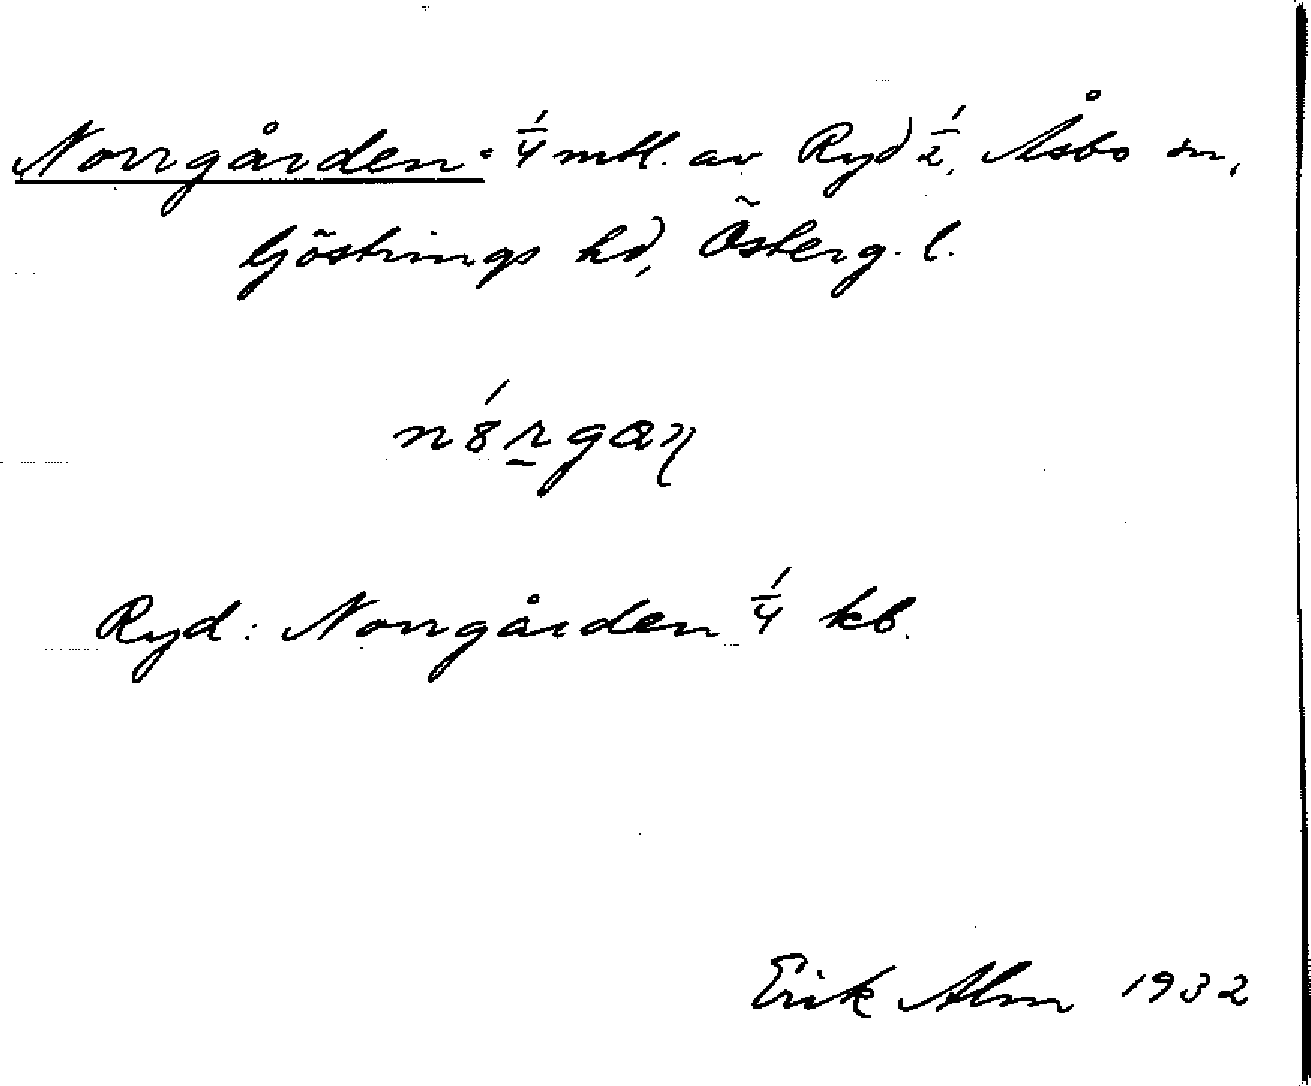 Norrgården = 1/4 mtl. av Ryd 1/2, Åsbo sn,
Göstrings hd, Österg. l.
Ryd: Norrgården 1/4 kb.
Erik Alm 1932